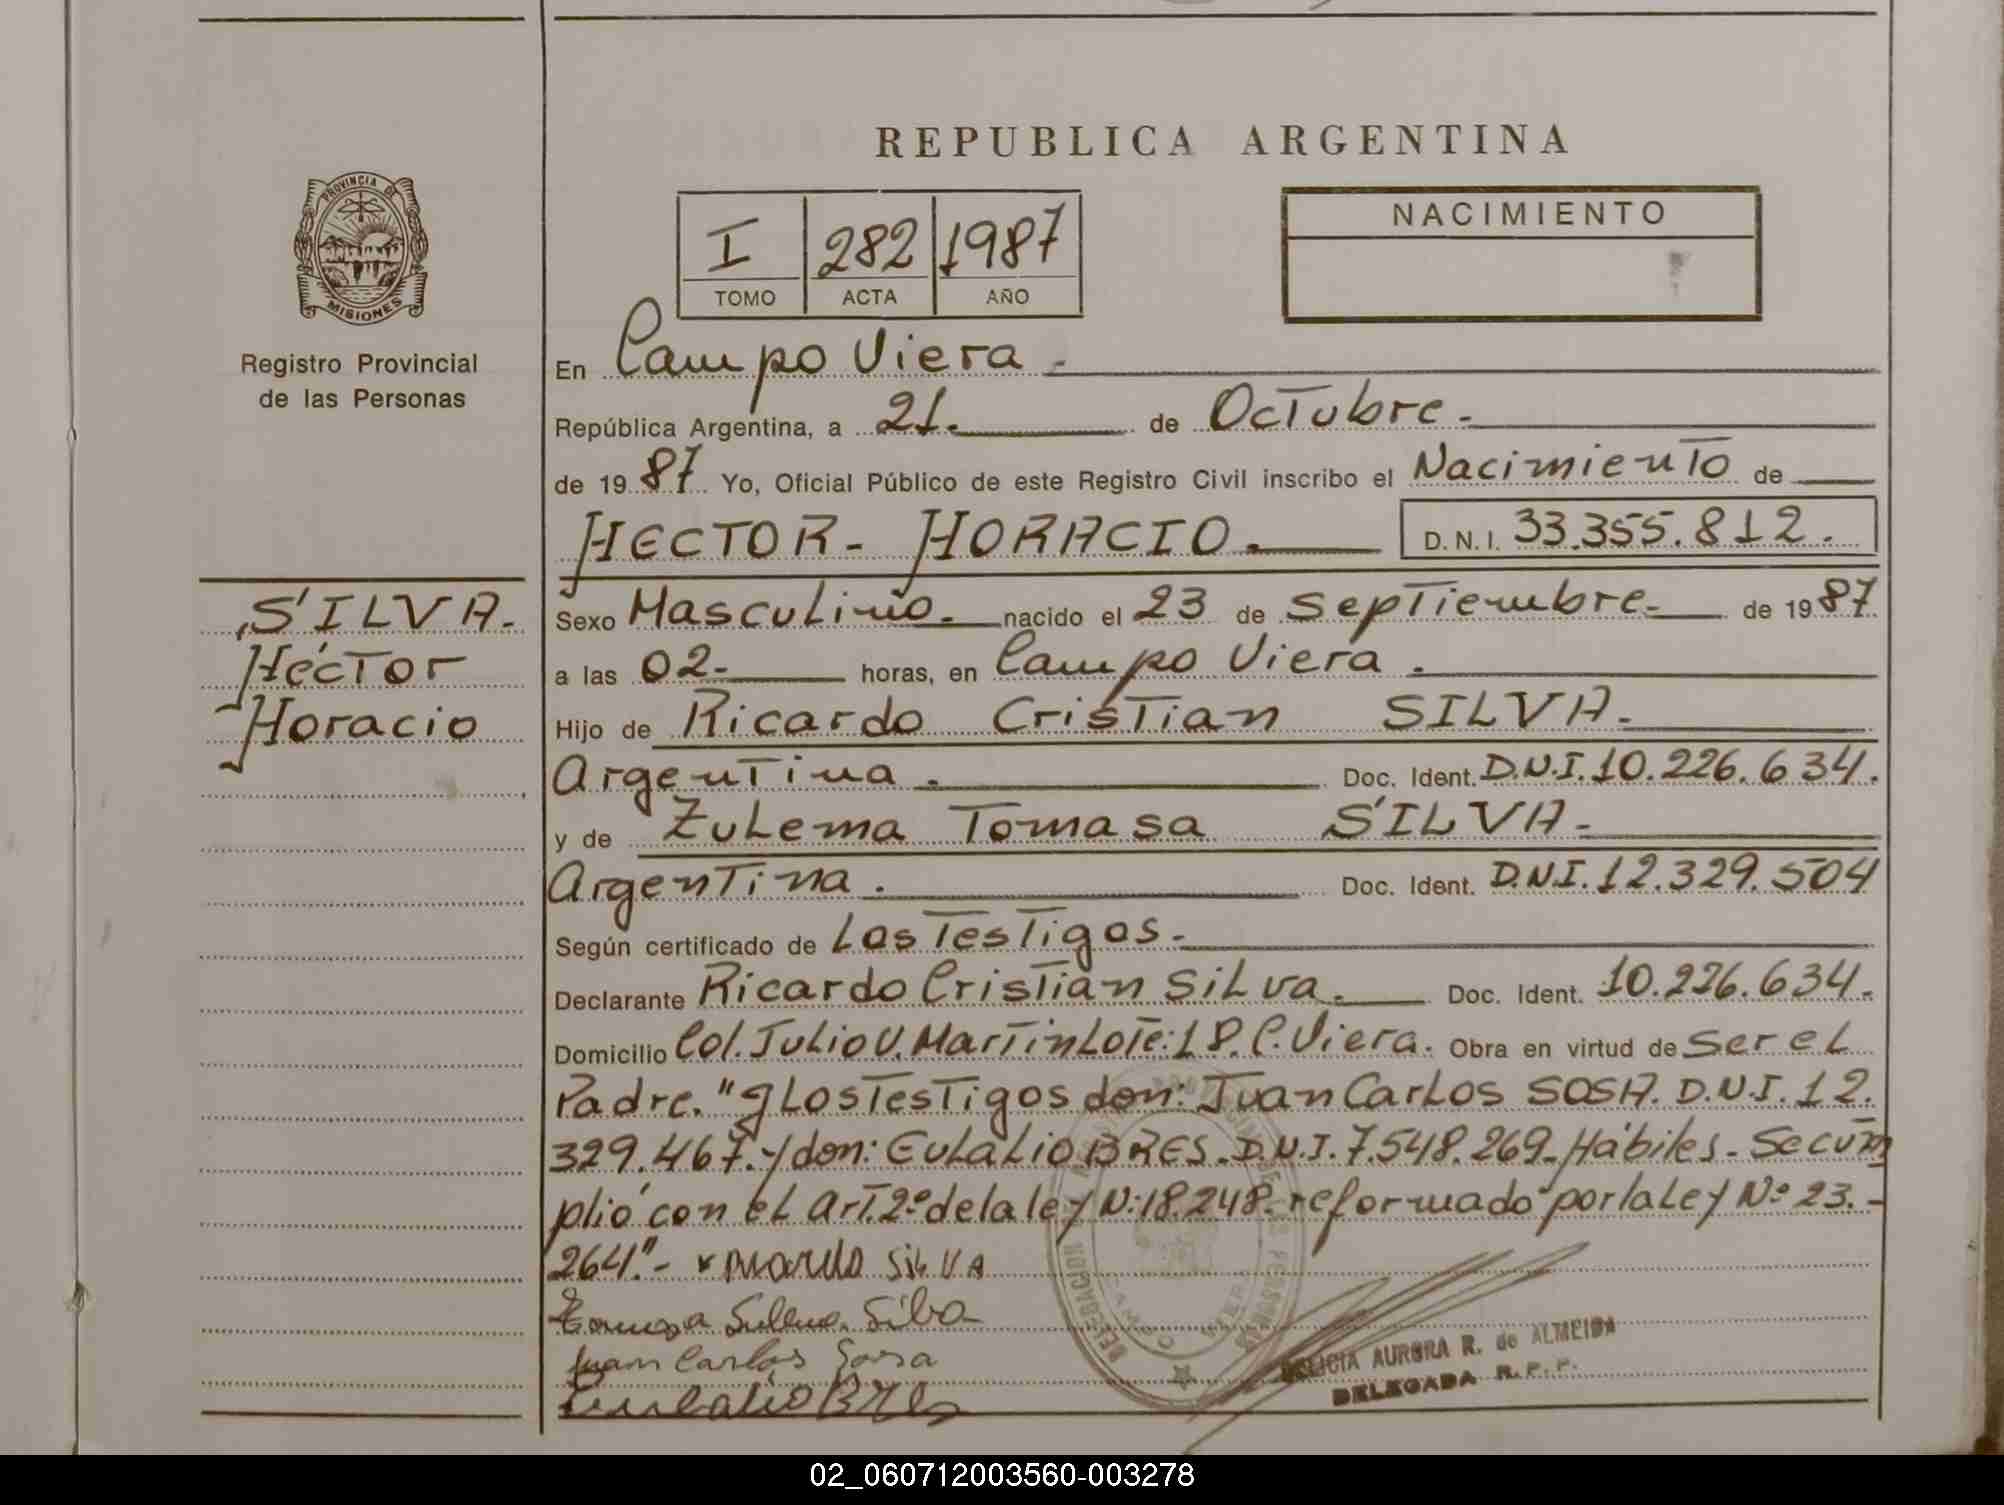 REPUBLICA ARGENTINA
PROVINCIA DE
MISIONES
Registro Provincial
de las Personas
I 282 1987
TOMO ACTA AÑO
NACIMIENTO
En Campo Viera.
República Argentina, a 21. de Octubre.
de 1987 Yo, Oficial Público de este Registro Civil inscribo el Nacimiento de
HECTOR- HORACIO. D.N.I. 33.355.812.
SILVA.
Héctor
Horacio
Sexo Masculino. nacido el 23 de septiembre. de 1987
a las 02. horas, en Campo Viera.
Hijo de Ricardo Cristian SILVA.
Argentina. Doc. Ident. D.N.I.10.226.634.
y de Zulema Tomasa SILVA.
Argentina. Doc. Ident. D.N.I.12.329.504
Según certificado de Los Testigos.
Declarante Ricardo Cristian Silva. Doc. Ident. 10.226.634.
Domicilio Col. Julio U. Martin Lote: 18. C. Viera. Obra en virtud de ser el
Padre. "y Los Testigos don: Juan Carlos SOSA. D.N.I. 12.
329.467.-y don: Eulalio BRES. D.N.I. 7.548.269. Hábiles. Se cúm
plió con el Art. 2º de la ley N: 18.248. reformado por la Ley Nº 23.-
264".- Silva
Silva
Juan Carlos Sosa
Eulalio Bres
DELEGACION CAMPO VIERA
DELICIA AURORA R. de ALMEIDA
DELEGADA R.P.P.
02_060712003560-003278